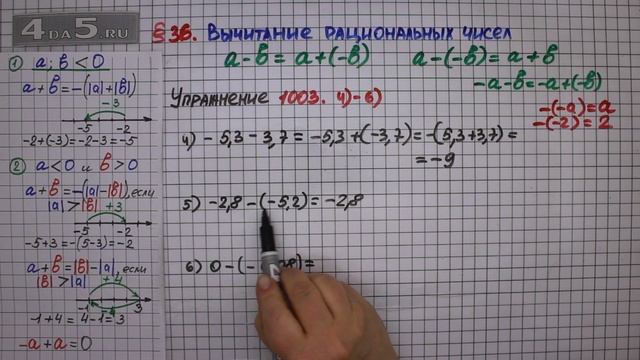 4DA5.RU
§36. Вычитание рациональных чисел
a-b=a+(-b) a-(-b)=a+b
-a-b=-a+(-b)
-(-a)=a
-(-2)=2
Упражнение 1003. 4)-6)
4) -5,3-3,7=-5,3+(-3,7)=-(5,3+3,7)=
=-9
5) -2,8-(-5,2)=-2,8
6) 0-(-
)=
① a;b<0
a+b=-(|a|+|b|)
-3
-5 -2
-2+(-3)=-2-3=-5
② a<0 и b>0
a+b=-(|a|-|b|), если
|a|>|b| +3
-5 -2
-5+3=-(5-3)=-2
a+b=|b|-|a|, если
|b|>|a| +4
-1 3
-1+4=4-1=3
-a+a=0